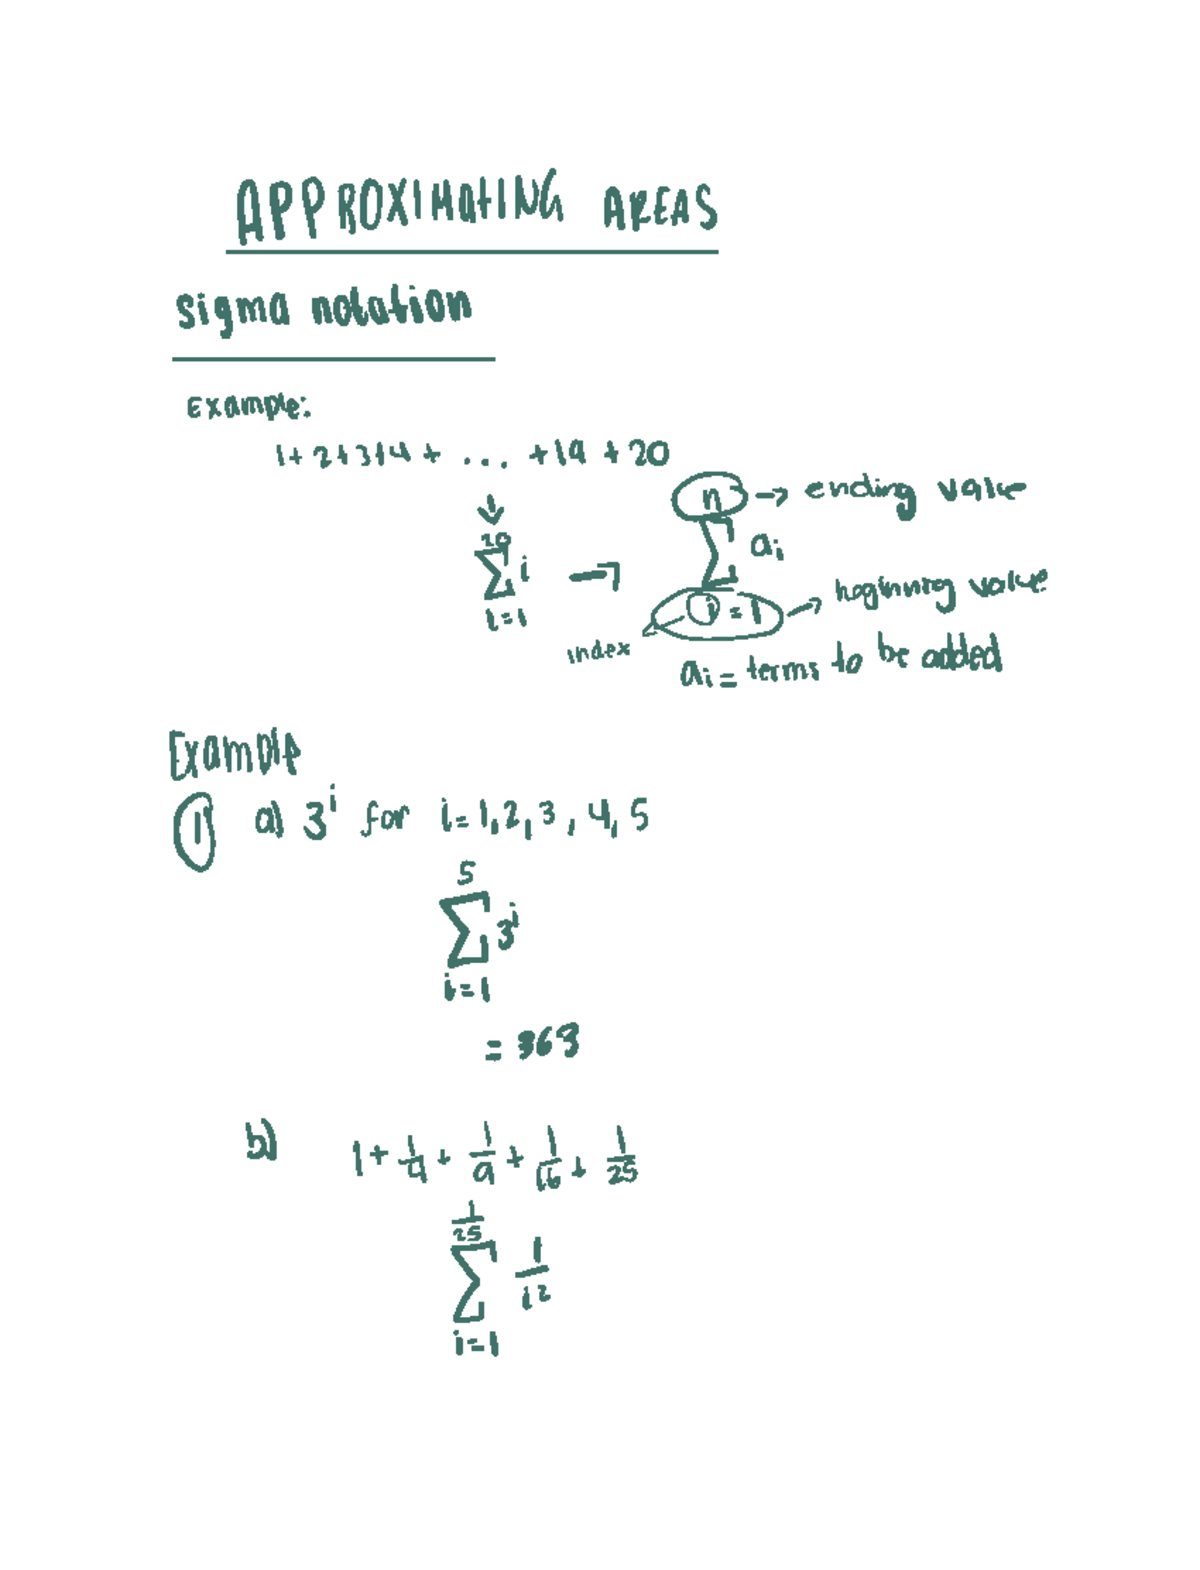 APPROXIMATING AREAS
sigma notation
Example:
1+2+3+4+ ... +19+20
n → ending value
↓
20
∑ i → ∑ ai
i=1
i=1 → beginning value
index
ai = terms to be added
Example
① a) 3^i for i=1,2,3,4,5
5
∑ 3^i
i=1
= 363
b) 1+1/4+1/9+1/16+1/25
1/25
∑ 1/i²
i=1